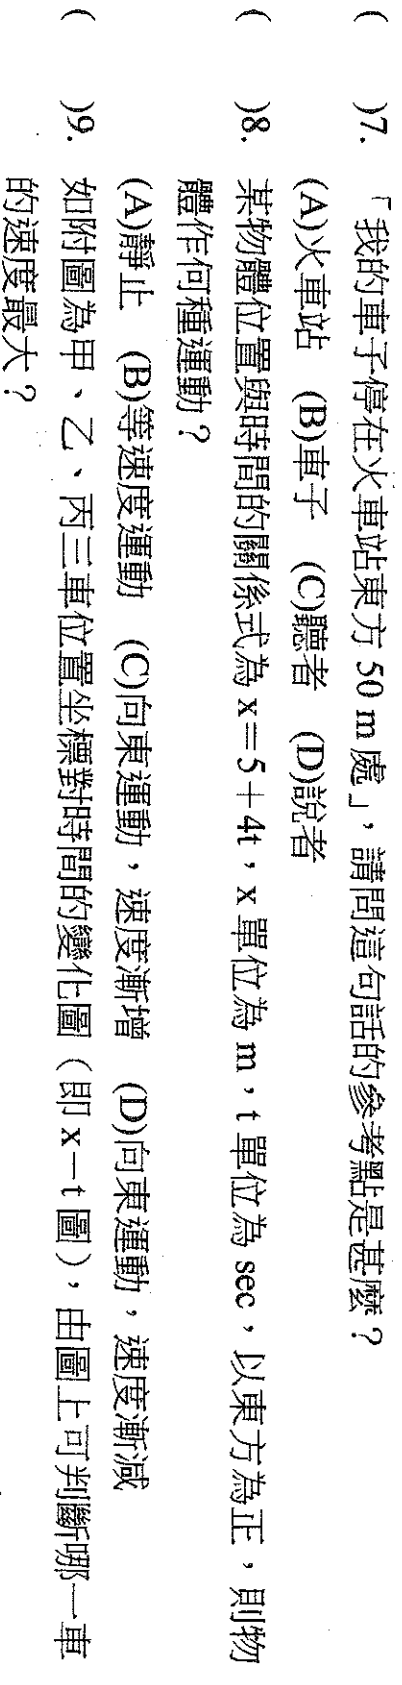 (　　)7. 「我的車子停在火車站東方 50 m 處」，請問這句話的參考點是甚麼？
(A)火車站　(B)車子　(C)聽者　(D)說者
(　　)8. 某物體位置與時間的關係式為 x＝5＋4t，x 單位為 m，t 單位為 sec，以東方為正，則物
體作何種運動？
(A)靜止　(B)等速度運動　(C)向東運動，速度漸增　(D)向東運動，速度漸減
(　　)9. 如附圖為甲、乙、丙三車位置坐標對時間的變化圖（即 x－t 圖），由圖上可判斷哪一車
的速度最大？